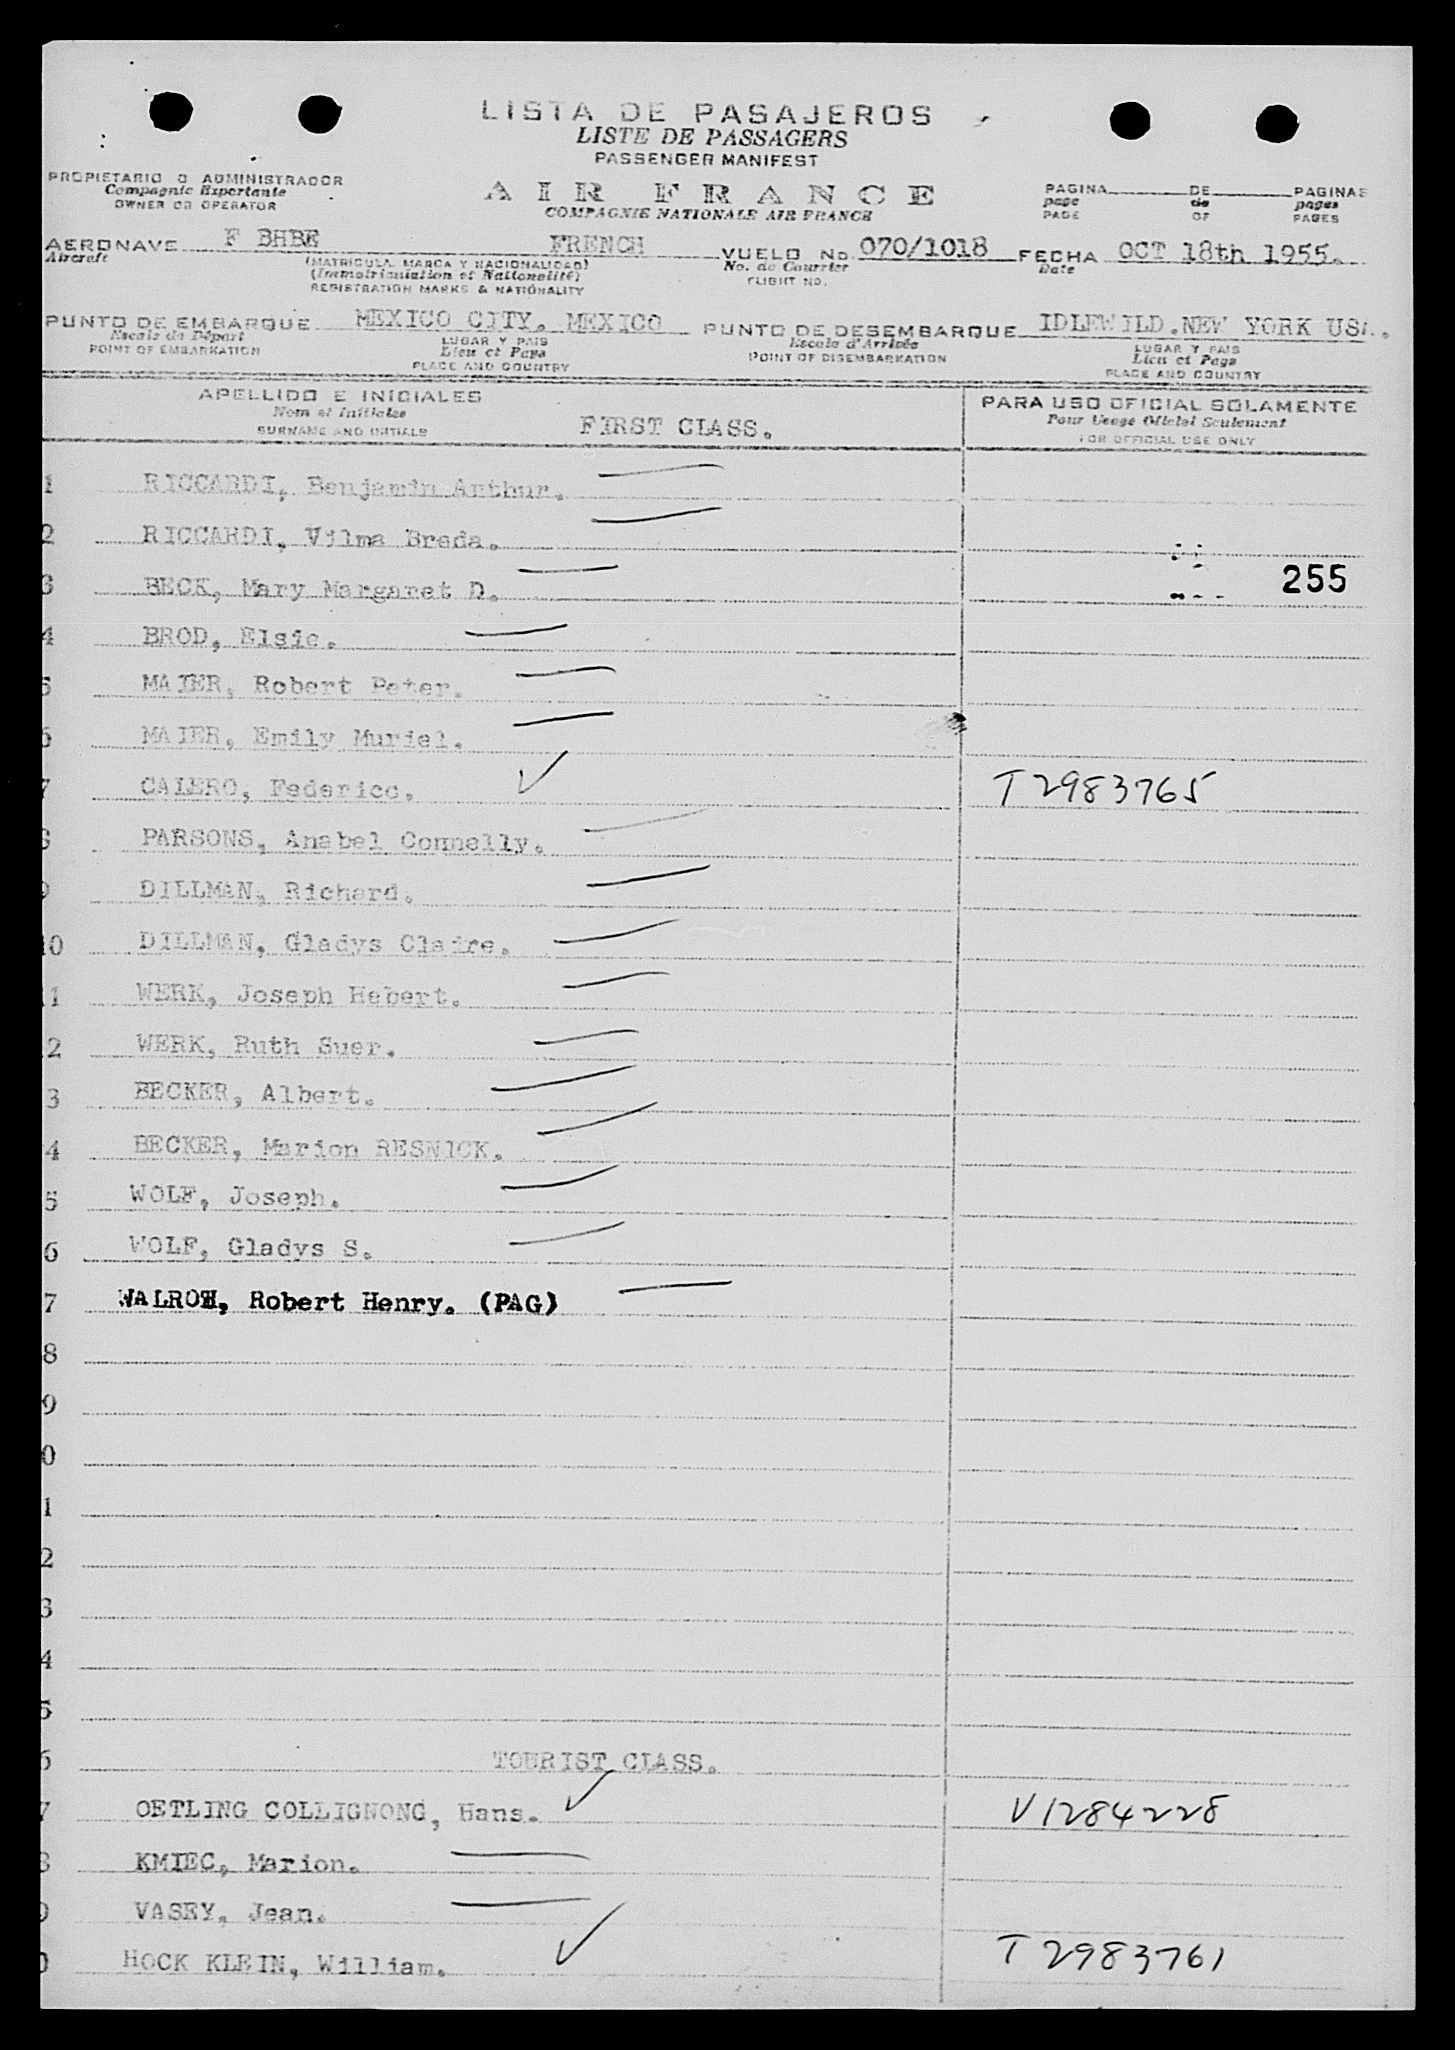 LISTA DE PASAJEROS
LISTE DE PASSAGERS
PASSENGER MANIFEST
PROPIETARIO O ADMINISTRADOR
Compagnie Exportante
OWNER OR OPERATOR
AIR FRANCE
COMPAGNIE NATIONALE AIR FRANCE
PAGINA DE PAGINAS
page de pages
PAGE OF PAGES
AERONAVE F BHBE FRENCH VUELO No. 070/1018 FECHA OCT 18th 1955.
Aircraft (MATRICULA, MARCA Y NACIONALIDAD) No. de Courrier Date
(Immatriculation et Nationalité) FLIGHT NO.
REGISTRATION MARKS & NATIONALITY
PUNTO DE EMBARQUE MEXICO CITY. MEXICO PUNTO DE DESEMBARQUE IDLEWILD.NEW YORK USA.
Escale de Départ LUGAR Y PAIS Escale d'Arrivée LUGAR Y PAIS
POINT OF EMBARKATION Lieu et Pays POINT OF DISEMBARKATION Lieu et Pays
PLACE AND COUNTRY PLACE AND COUNTRY
APELLIDO E INICIALES PARA USO OFICIAL SOLAMENTE
Nom et Initiales FIRST CLASS. Pour Usage Officiel Seulement
SURNAME AND INITIALS FOR OFFICIAL USE ONLY
1 RICCARDI, Benjamin Arthur.
2 RICCARDI, Vilma Breda.
3 BECK, Mary Margaret D. 255
4 BROD, Elsie.
5 MAIER, Robert Peter.
6 MAIER, Emily Muriel.
7 CALERO, Federico. T2983765
8 PARSONS, Anabel Connelly.
9 DILLMAN, Richard.
10 DILLMAN, Gladys Claire.
11 WERK, Joseph Hebert.
2 WERK, Ruth Suer.
3 BECKER, Albert.
4 BECKER, Marion RESNICK.
5 WOLF, Joseph.
6 WOLF, Gladys S.
7 WALROW, Robert Henry. (PAG)
8
9
0
1
2
3
4
5
6 TOURIST CLASS.
7 OETLING COLLIGNONG, Hans. V1284228
8 KMIEC, Marion.
9 VASEY, Jean.
0 HOCK KLEIN, William. T2983761